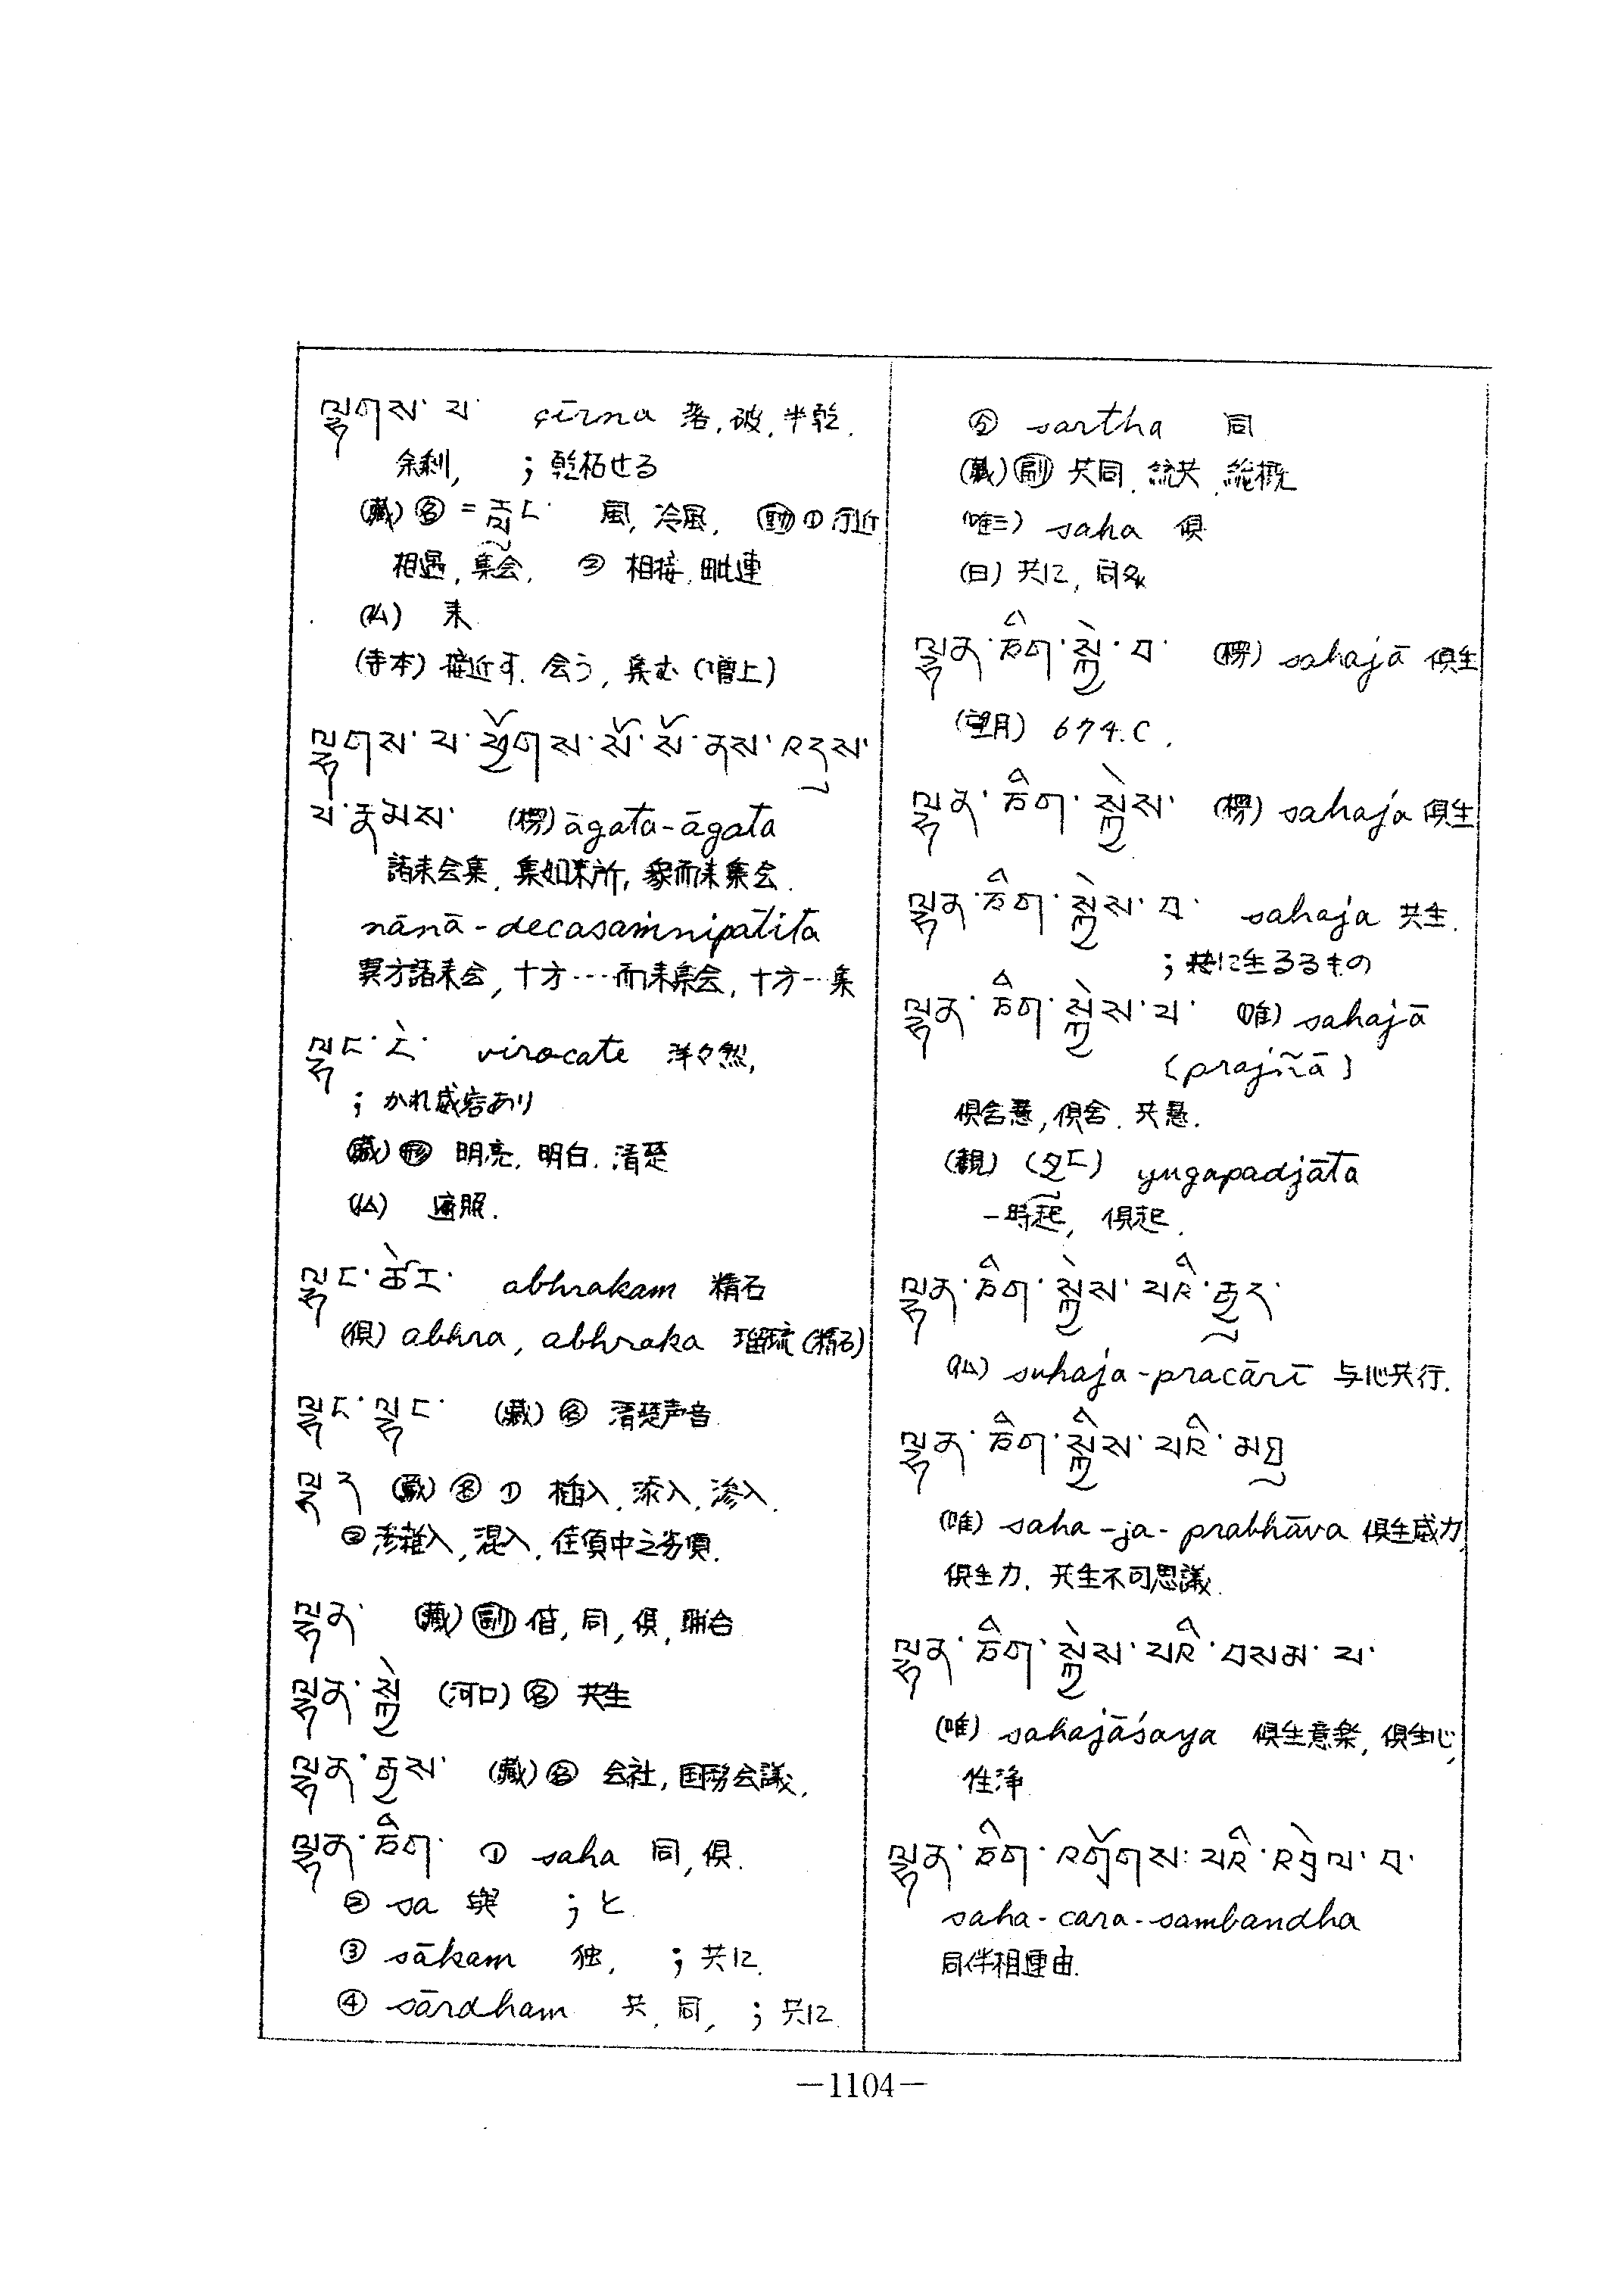 ལྷགས་པ་ çīrna 落,破,半乾.
余剰, ; 乾枯せる
(蔵)㊔ = རླུང་ 風, 冷風, ㊐① 行近
相遇, 集会, ② 相接, 毗連
(仏) 来
(寺本) 接近す. 会う, 集む (増上)
ལྷགས་པ་ཕྱོགས་སོ་སོ་ནས་འདུས་
པ་རྣམས་ (楞) āgata-āgata
諸来会集, 集如来所, 衆而来集会.
nānā-decasaṁnipātita
異方諸来会, 十方…而来集会, 十方…集
ལྷང་ངེ་ virocate 洋々然,
; かれ威容あり
(蔵)㊒ 明亮, 明白, 清楚
(仏) 遍照.
ལྷང་ཚེར་ abhrakam 精石
(倶) abhra, abhraka 瑠琉 (精石)
ལྷང་ལྷང་ (蔵) 名 清楚声音
ལྷད (蔵) 名 ① 插入, 添入, 滲入.
② 滲雑入, 混入,
ལྷན་ (蔵) 副 偕, 同, 倶, 聯合
ལྷན་སྐྱེ (河口) 名 共生
ལྷན་རྒྱས་ (蔵) 名 会社, 国務会議,
ལྷན་ཅིག་ ① saha 同, 倶.
② sa 與 ; と
③ sākam 独, ; 共に
④ sārdham 共, 同, ; 共に
⑤ sartha 同
(蔵) 副 共同, 統共, 総概
(唯三) saha 倶
(日) 共に, 同多
ལྷན་ཅིག་སྐྱེ་བ་ (楞) sahajā 倶生
(望月) 674.C.
ལྷན་ཅིག་སྐྱེས་ (楞) sahaja 倶生
ལྷན་ཅིག་སྐྱེས་བ་ sahaja 共生.
; 共に生るるもの
ལྷན་ཅིག་སྐྱེས་པ་ (唯) sahajā
(prajñā)
倶舎慧, 倶舍, 共慧.
(観) (ཅུང) yugapadjāta
一時起, 倶起.
ལྷན་ཅིག་སྐྱེས་པའི་རྒྱུད་
(仏) suhaja-pracārī 与心共行.
ལྷན་ཅིག་སྐྱེས་པའི་མཐུ
(唯) saha-ja-prabhāva 倶生威力,
倶生力, 共生不可思議.
ལྷན་ཅིག་སྐྱེས་པའི་བསམ་པ་
(唯) sahajāśaya 倶生意楽, 倶生心,
性浄
ལྷན་ཅིག་འགྲོགས་པའི་འབྲེལ་བ་
saha-cara-sambandha
同伴相連由.
—1104—